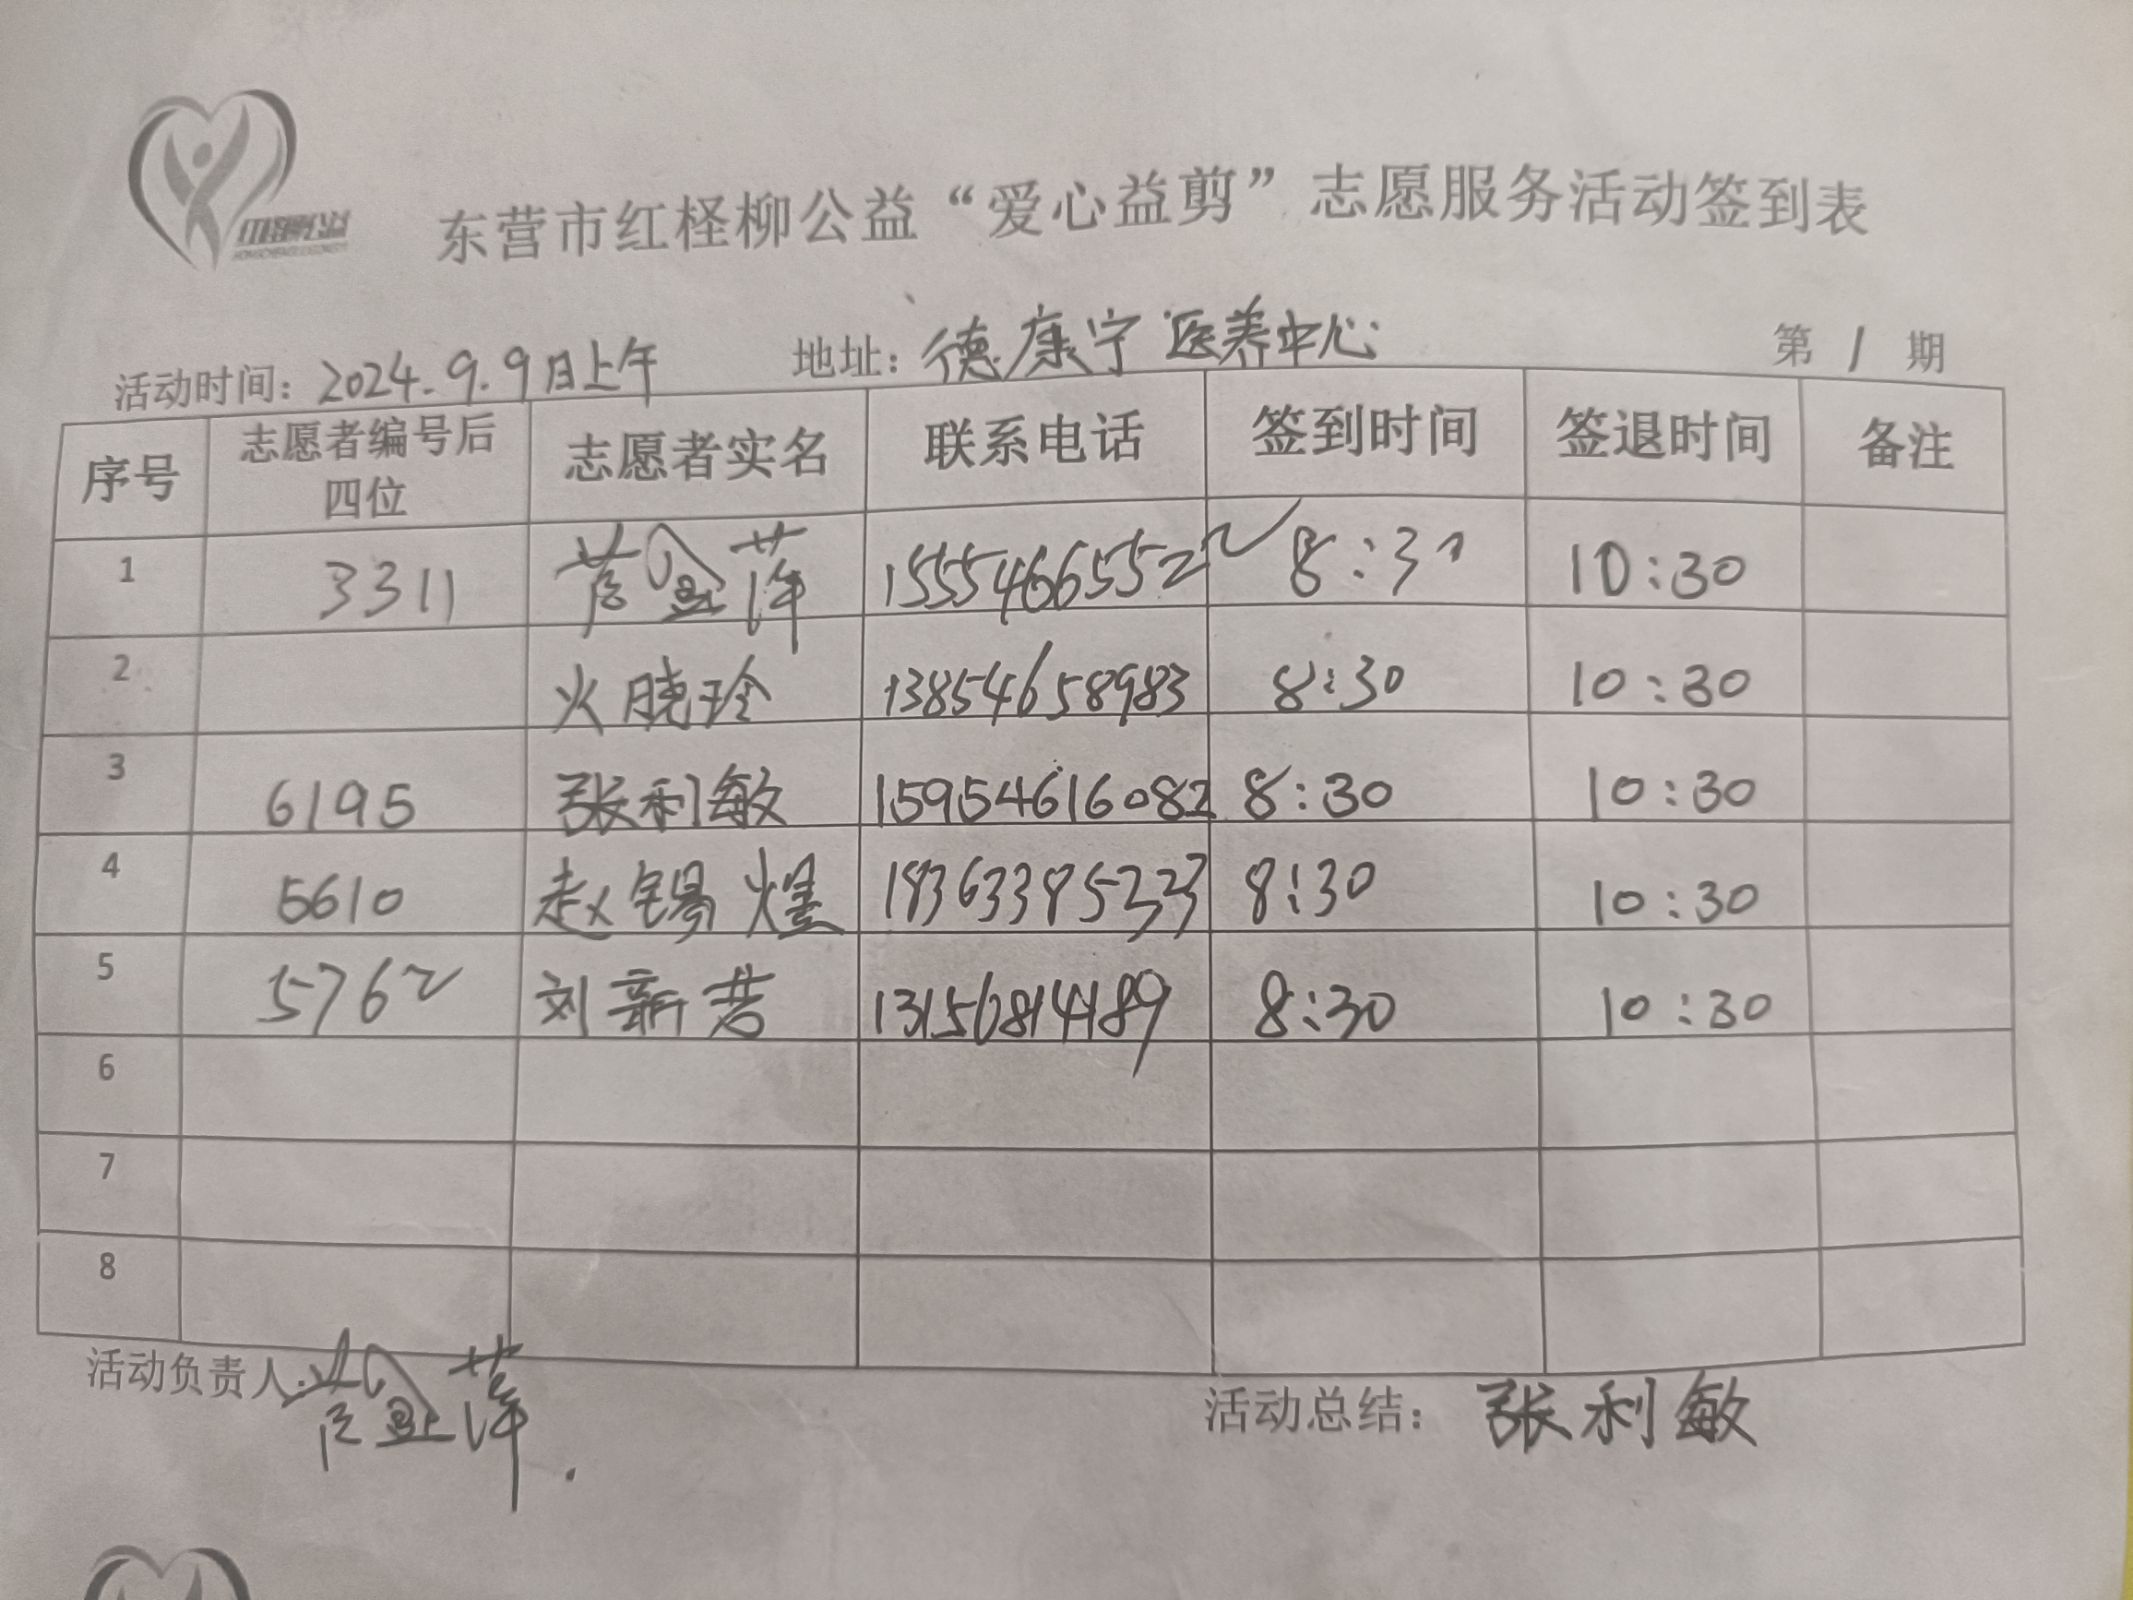 东营市红柽柳公益“爱心益剪”志愿服务活动签到表
活动时间：2024.9.9日上午 地址：德康宁医养中心 第 1 期
序号 志愿者编号后四位 志愿者实名 联系电话 签到时间 签退时间 备注
1 3311 15554665522 8:30 10:30
2 火晓玲 13854658983 8:30 10:30
3 6195 张利敏 15954616082 8:30 10:30
4 5610 赵锡煜 18363385233 8:30 10:30
5 5762 刘新营 13156814189 8:30 10:30
6
7
8
活动负责人： 活动总结：张利敏